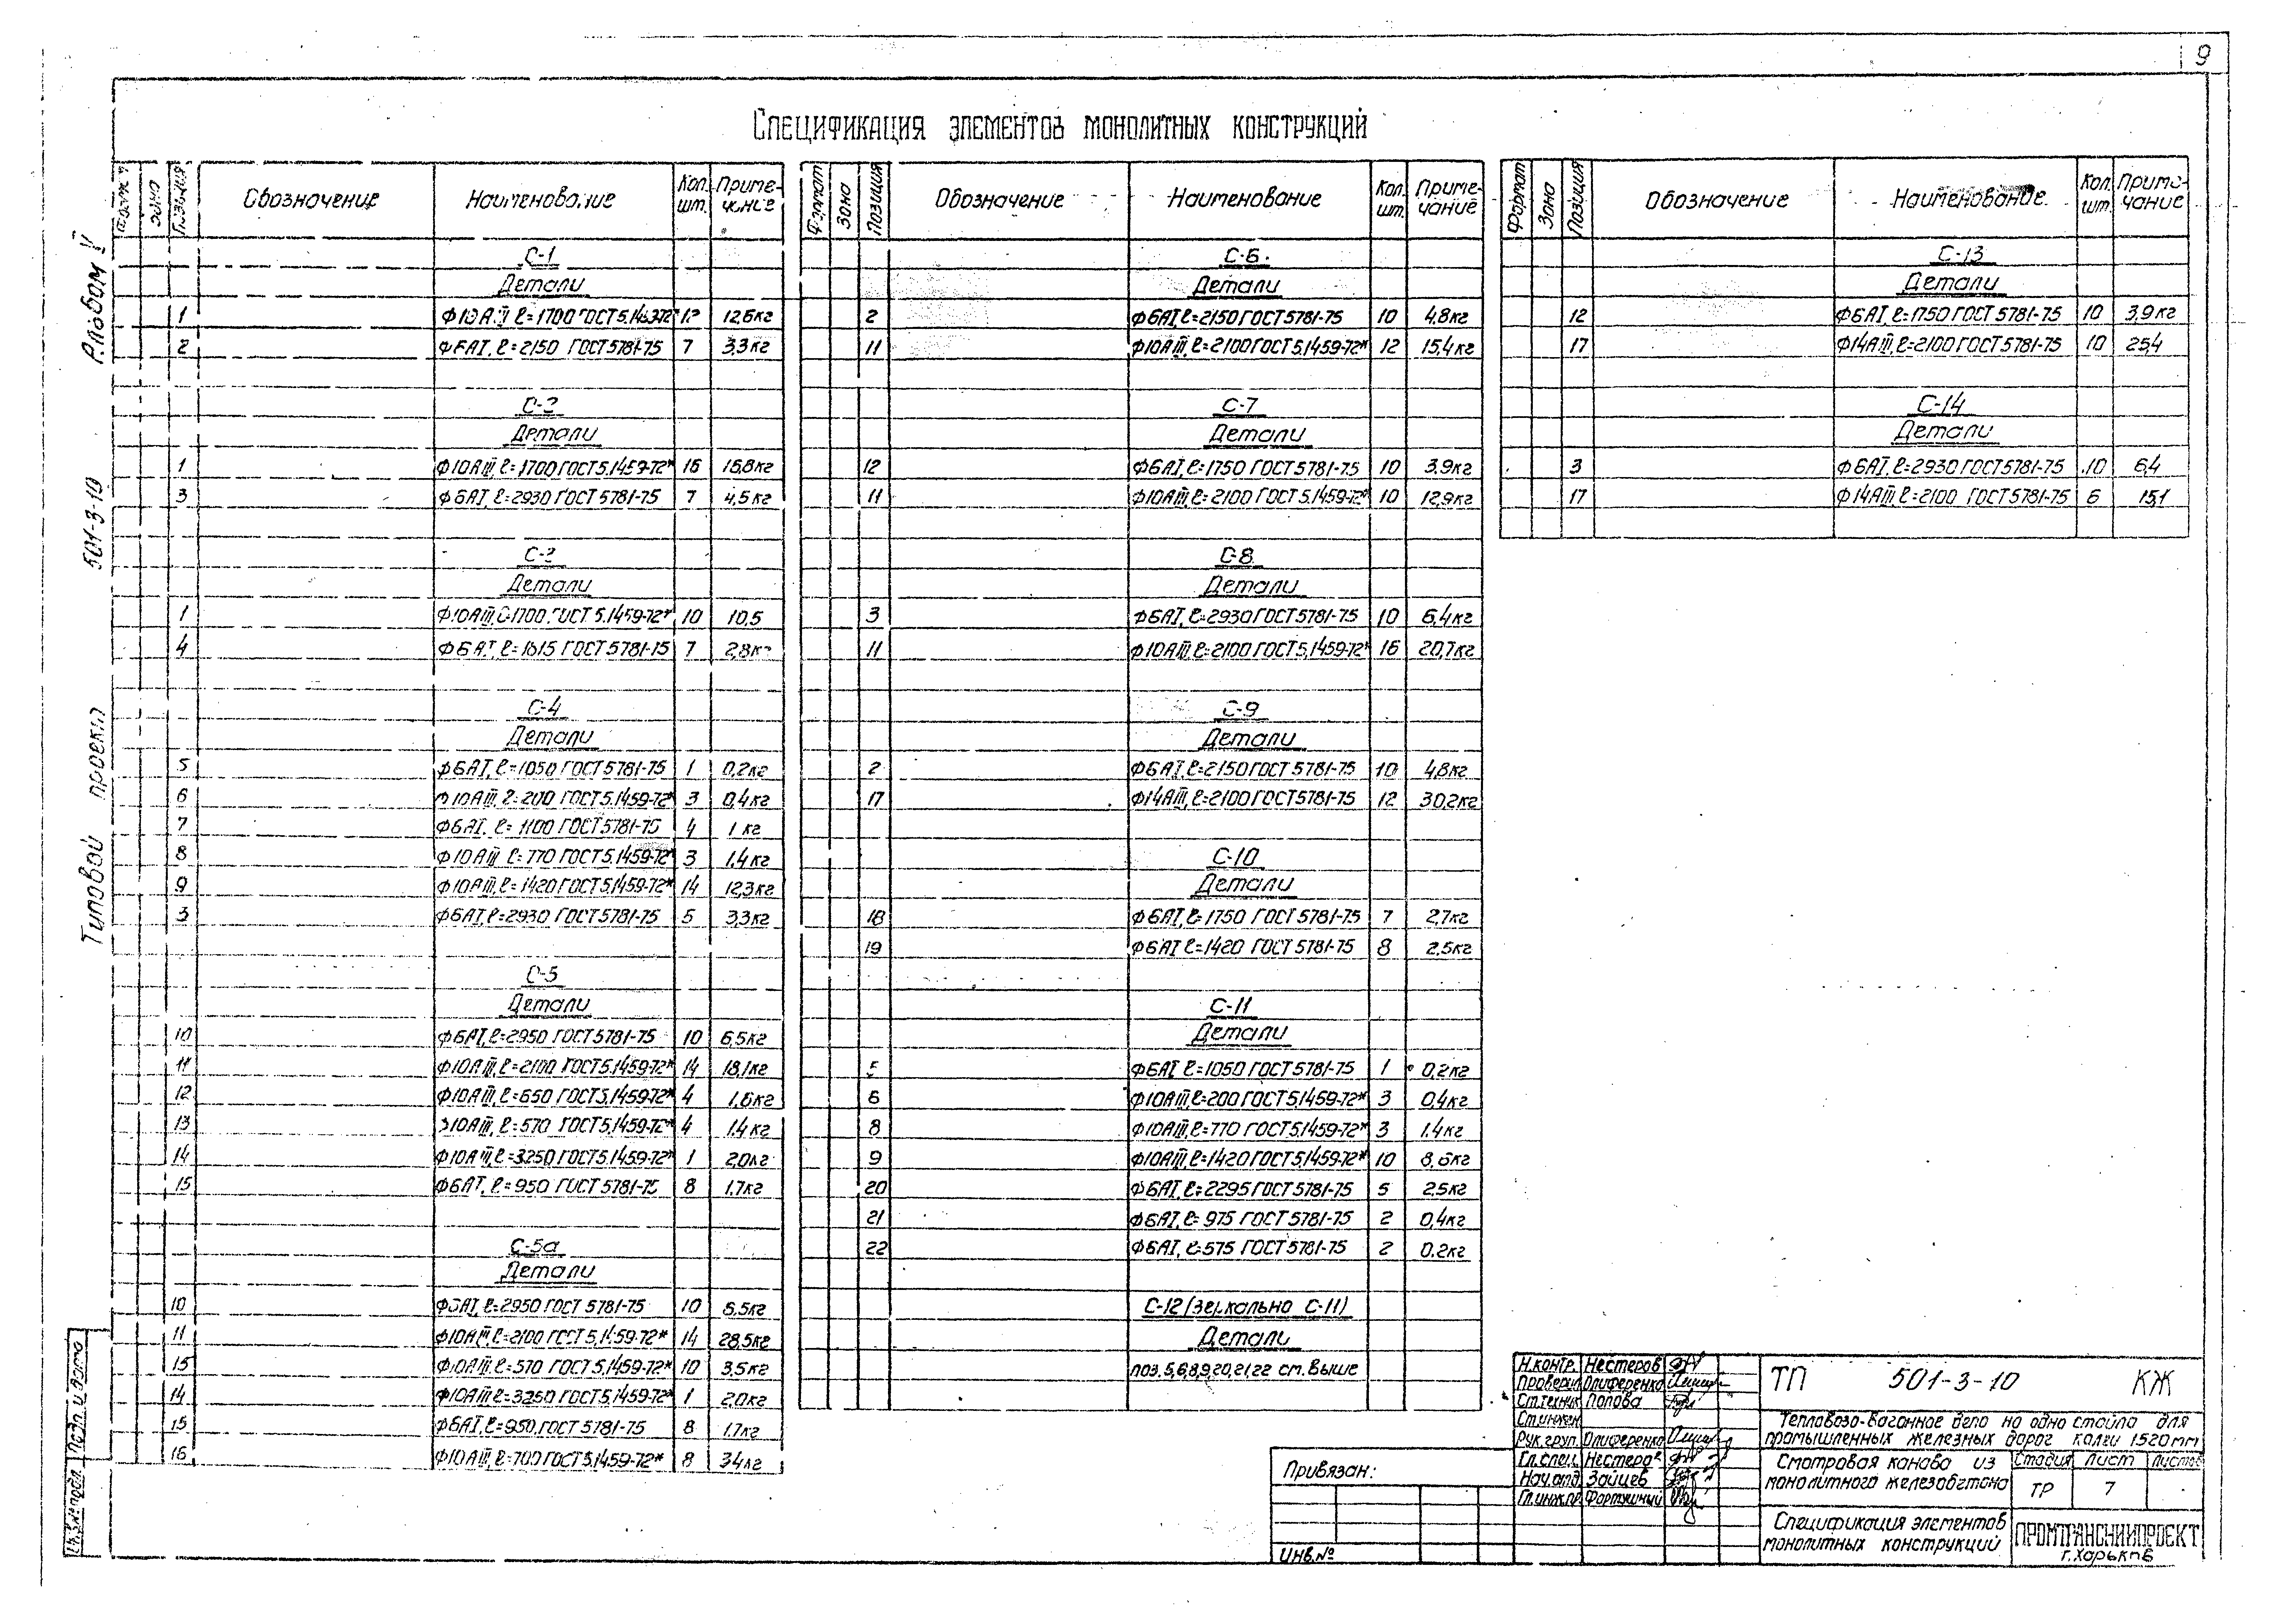 9
Спецификация элементов монолитных конструкций
Альбом V
501-3-10
Типовой проект
Позиция Обозначение Наименование Кол. шт. Примечание
С-1
Детали
1 Ф10АIII ℓ=1700 ГОСТ 5.1459-72* 12 12,6кг
2 Ф6АI, ℓ=2150 ГОСТ 5781-75 7 3,3кг
Детали
1 Ф10АIII, ℓ=1700 ГОСТ 5.1459-72* 15,8кг
3 Ф6АI, ℓ=2930 ГОСТ 5781-75 7 4,5кг
Детали
1 Ф10АIII, ℓ=1700 ГОСТ 5.1459-72* 10 10,5
4 Ф6АI, ℓ=1615 ГОСТ 5781-75 7 2,8кг
С-4
Детали
5 Ф6АI, ℓ=1050 ГОСТ 5781-75 1 0,2кг
6 Ф10АIII, ℓ=200 ГОСТ 5.1459-72* 3 0,4кг
7 Ф6АI, ℓ=1100 ГОСТ 5781-75 4 1кг
8 Ф10АIII ℓ=770 ГОСТ 5.1459-72* 3 1,4кг
9 Ф10АIII, ℓ=1420 ГОСТ 5.1459-72* 14 12,3кг
3 Ф6АI, ℓ=2930 ГОСТ 5781-75 5 3,3кг
С-5
Детали
10 Ф6АI, ℓ=2950 ГОСТ 5781-75 10 6,5кг
11 Ф10АIII, ℓ=2100 ГОСТ 5.1459-72* 14 18,1кг
12 Ф10АIII, ℓ=650 ГОСТ 5.1459-72* 4 1,6кг
13 Ф10АIII, ℓ=570 ГОСТ 5.1459-72* 4 1,4кг
14 Ф10АIII, ℓ=3250 ГОСТ 5.1459-72* 1 2,0кг
15 Ф6АI, ℓ=950 ГОСТ 5781-75 8 1,7кг
С-5а
Детали
10 Ф6АI, ℓ=2950 ГОСТ 5781-75 10
11 Ф10АIII, ℓ=2100 ГОСТ 5.1459-72* 14 28,5кг
Ф10АIII, ℓ=570 ГОСТ 5.1459-72* 10 3,5кг
14 Ф10АIII ℓ=3250 ГОСТ 5.1459-72* 1 2,0кг
15 Ф6АI, ℓ=950 ГОСТ 5781-75 8 1,7кг
16 Ф10АIII, ℓ=700 ГОСТ 5.1459-72* 8 3,4кг
Формат Зона Позиция Обозначение Наименование Кол. шт. Примечание
С-6
Детали
2 Ф6АI ℓ=2150 ГОСТ 5781-75 10 4,8кг
11 Ф10АIII, ℓ=2100 ГОСТ 5.1459-72* 12 15,4кг
С-7
Детали
12 Ф6АI, ℓ=1750 ГОСТ 5781-75 10 3,9кг
11 Ф10АIII, ℓ=2100 ГОСТ 5.1459-72* 10 12,9кг
С-8
Детали
3 Ф6АI, ℓ=2930 ГОСТ 5781-75 10 6,4кг
11 Ф10АIII, ℓ=2100 ГОСТ 5.1459-72* 16 20,7кг
С-9
Детали
2 Ф6АI, ℓ=2150 ГОСТ 5781-75 10 4,8кг
17 Ф14АIII, ℓ=2100 ГОСТ 5781-75 12 30,2кг
С-10
Детали
18 Ф6АI, ℓ=1750 ГОСТ 5781-75 7 2,7кг
19 Ф6АI ℓ=1420 ГОСТ 5781-75 8 2,5кг
С-11
Детали
5 Ф6АI ℓ=1050 ГОСТ 5781-75 1 0,2кг
6 Ф10АIII, ℓ=200 ГОСТ 5.1459-72* 3 0,4кг
8 Ф10АIII, ℓ=770 ГОСТ 5.1459-72* 3 1,4кг
9 Ф10АIII, ℓ=1420 ГОСТ 5.1459-72* 10 8,6кг
20 Ф6АI, ℓ=2295 ГОСТ 5781-75 5 2,5кг
21 Ф6АI, ℓ=975 ГОСТ 5781-75 2 0,4кг
22 Ф6АI, ℓ=575 ГОСТ 5781-75 2 0,2кг
С-12 (зеркально С-11)
Детали
поз. 5,6,8,9,20,21,22 см. выше
Формат Зона Позиция Обозначение Наименование Кол. шт. Примечание
С-13
Детали
12 Ф6АI, ℓ=1750 ГОСТ 5781-75 10 3,9кг
17 Ф14АIII, ℓ=2100 ГОСТ 5781-75 10 25,4
С-14
Детали
3 Ф6АI, ℓ=2930 ГОСТ 5781-75 10 6,4
17 Ф14АIII, ℓ=2100 ГОСТ 5781-75 6 15,1
Подп. и дата
Инв.№ подл.
Привязан:
Инв.№
Н.контр. Нестеров
Проверил Олиференко
Ст.техник Попова
Ст.инжен.
Рук.груп. Олиференко
Гл.спец. Нестеров
Нач.отд. Зайцев
Гл.инж.пр.
ТП 501-3-10 КЖ
Тепловозо-вагонное депо на одно стойло для
промышленных железных дорог колеи 1520мм
Смотровая канава из
монолитного железобетона
Стадия Лист Листов
ТР 7
Спецификация элементов
монолитных конструкций
ПРОМТРАНСНИИПРОЕКТ
г.Харьков